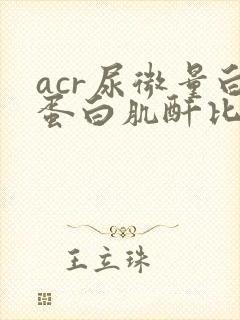 acr尿微量白
蛋白肌酐比
王立珠